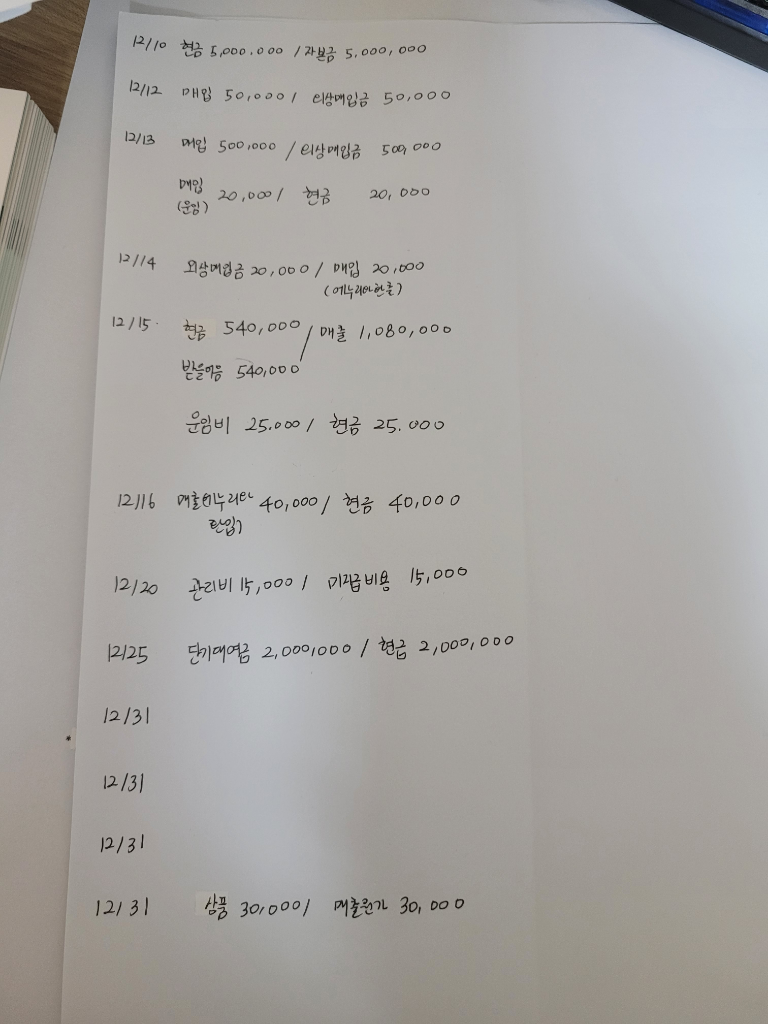 12/10 현금 5,000,000 / 자본금 5,000,000
12/12 매입 50,000 / 외상매입금 50,000
12/13 매입 500,000 / 외상매입금 500,000
매입 20,000 / 현금 20,000
(운임)
12/14 외상매입금 20,000 / 매입 20,000
(에누리와환출)
12/15. 현금 540,000 / 매출 1,080,000
받을어음 540,000
운임비 25.000 / 현금 25.000
12/16 매출에누리와 40,000 / 현금 40,000
환입
12/20 관리비 15,000 / 미지급비용 15,000
12/25 단기대여금 2,000,000 / 현금 2,000,000
12/31
12/31
12/31
12/31 상품 30,000 / 매출원가 30,000